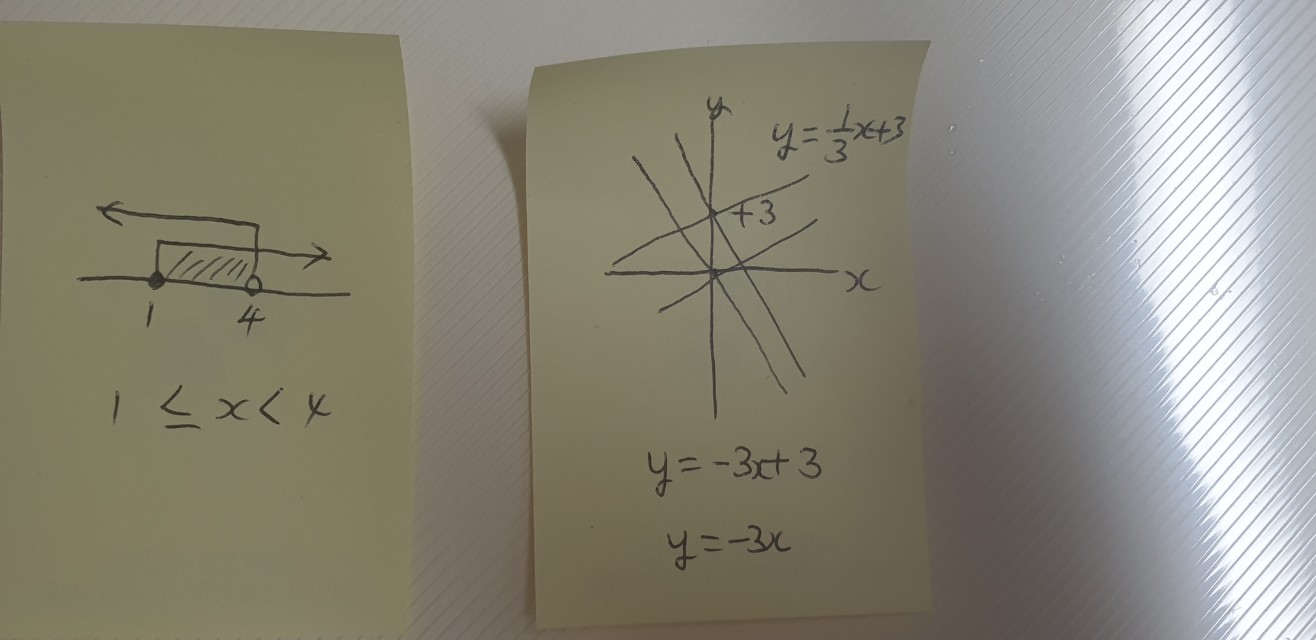 1 4
1 ≤ x < 4
y
y = 1/3 x + 3
+3
x
y = -3x + 3
y = -3x